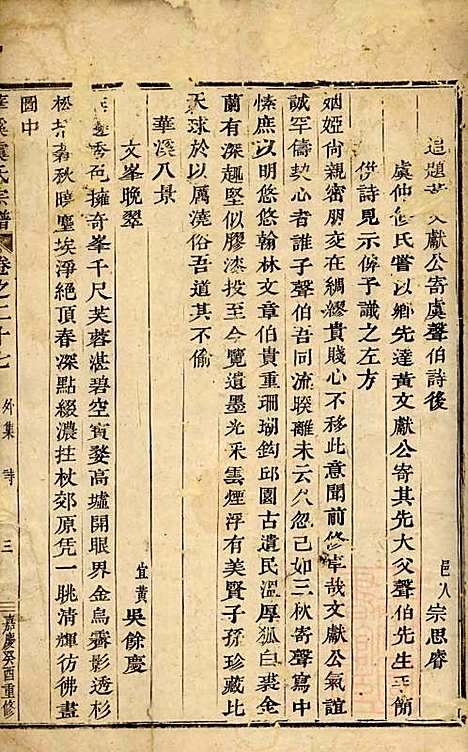 追題黃文獻公寄虞聲伯詩後
邑人宗思睿
虞仲脩氏嘗以鄉先達黃文獻公寄其先大父聲伯先生手簡
併詩見示俾予識之左方
姻婭尚親密朋交在綢繆貴賤心不移此意聞前修偉哉文獻公氣誼
誠罕儔契心者誰子聲伯吾同流暌離未云久忽已如三秋寄聲寫中
愫庶以明悠悠翰林文章伯貴重珊瑚鉤邱園古遺民溫厚狐白裘金
蘭有深趣堅似膠漆投至今覽遺墨光采雲煙浮有美賢子孫珍藏比
天球於以厲澆俗吾道其不偷
華溪八景
宜黃吳餘慶
文峯晚翠
秀色擁奇峯千尺芙蓉湛碧空寶婺高墟開眼界金烏霽影透杉
松 春秋曉塵埃淨絕頂春深點綴濃拄杖郊原凭一眺清輝彷彿畫
圖中
華溪虞氏宗譜 卷之二十七 外集 詩 三 嘉慶癸酉重修